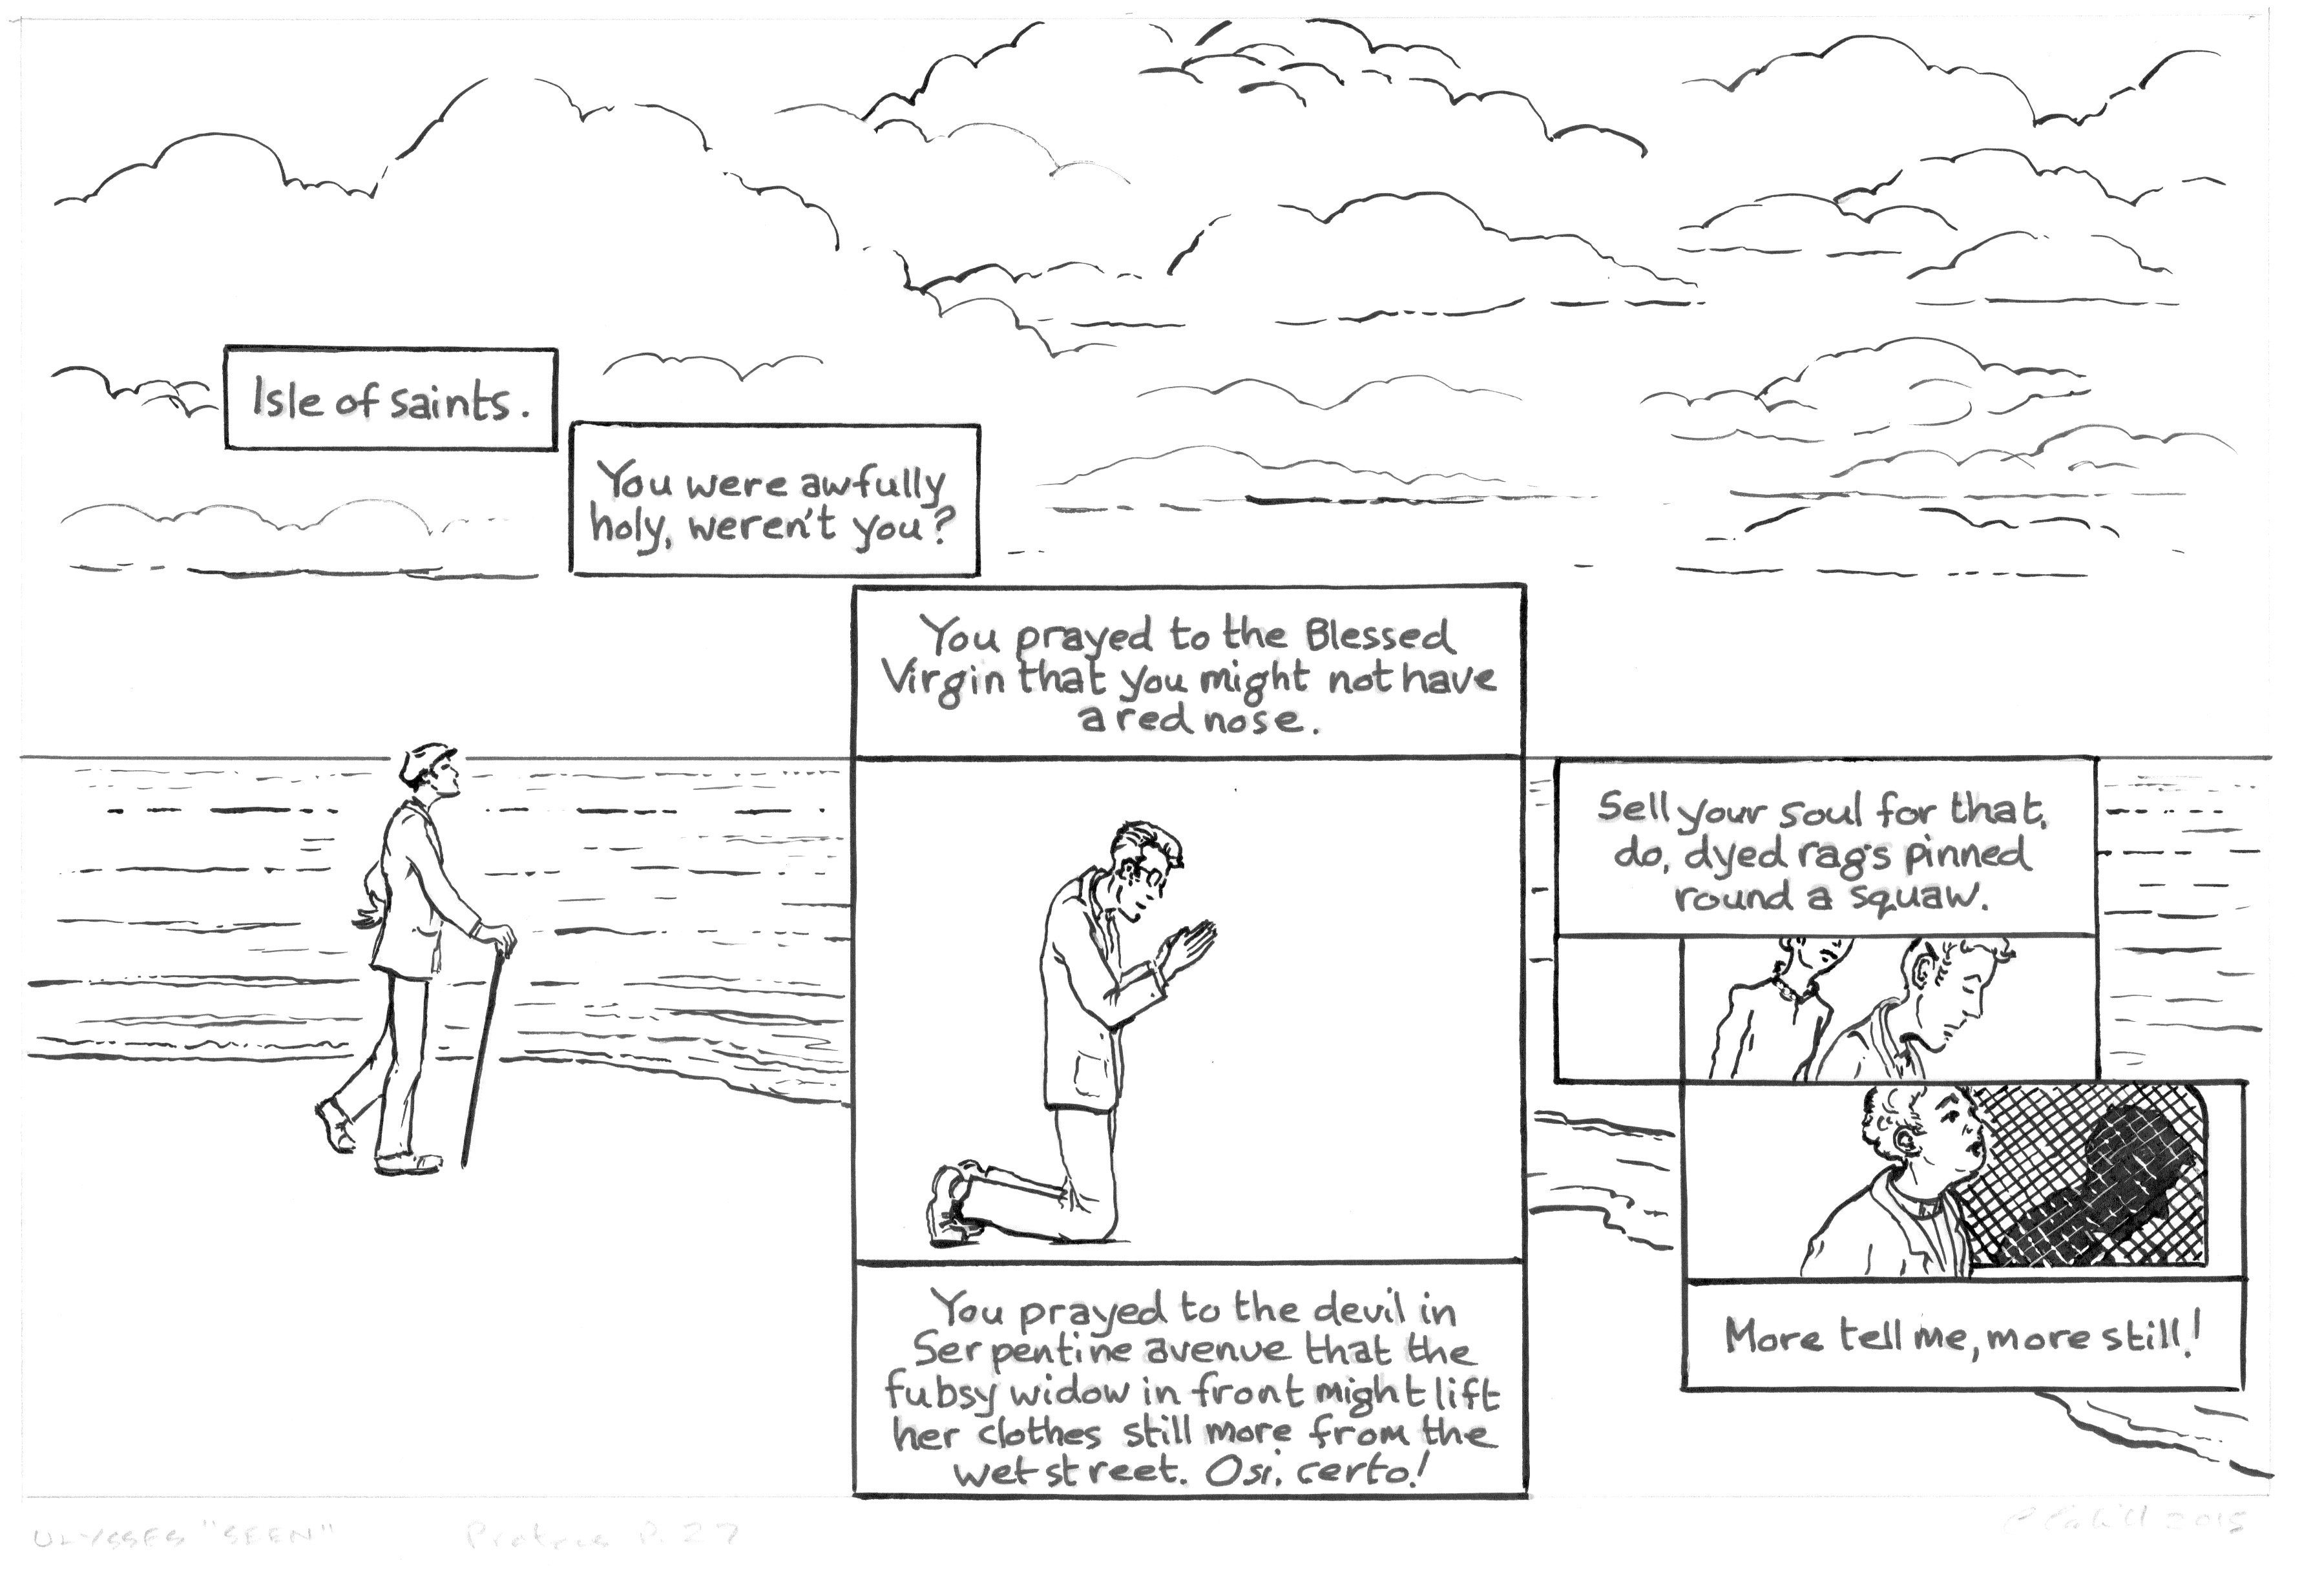 Isle of saints.
You were awfully
holy, weren't you?
You prayed to the Blessed
Virgin that you might not have
a red nose.
You prayed to the devil in
Serpentine avenue that the
fubsy widow in front might lift
her clothes still more from the
wet street. O si, certo!
Sell your soul for that,
do, dyed rags pinned
round a squaw.
More tell me, more still!
ULYSSES "SEEN" Proteus P. 27
P Cahill 2015